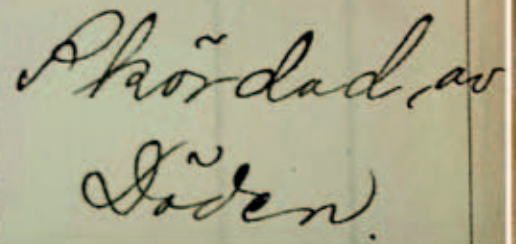 Skördad, av
Döden.